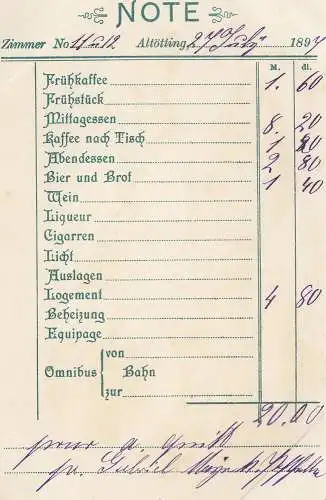 NOTE
Zimmer No. 11 u 12 Altötting, 27 July 1894
M. dl.
Frühkaffee 1. 60
Frühstück
Mittagessen 8. 20
Kaffee nach Tisch 1 20
Abendessen 2 80
Bier und Brot 1 40
Wein
Liqueur
Cigarren
Licht
Auslagen
Logement 4 80
Beheizung
Equipage
von
Omnibus Bahn
zur
20.00